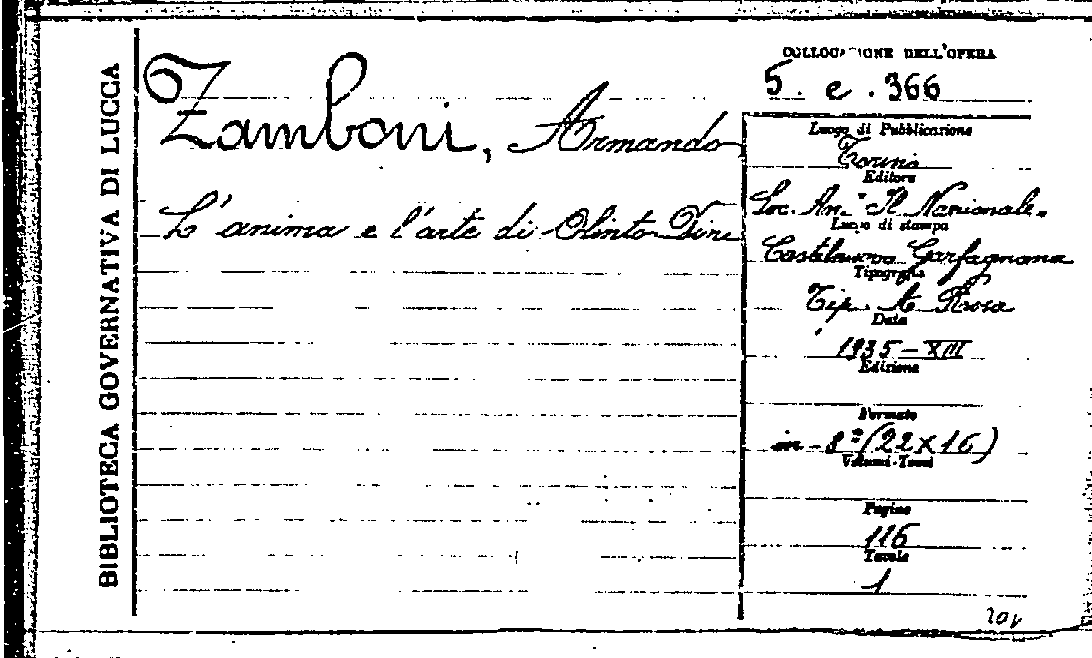 BIBLIOTECA GOVERNATIVA DI LUCCA
Zamboni, Armando
L'anima e l'arte di Olinto Dini
COLLOCAZIONE DELL'OPERA
5. e. 366
Luogo di Pubblicazione
Torino
Editore
Soc. An. "Il Nazionale"
Luogo di stampa
Castelnuovo Garfagnana
Tipografia
Tip. A. Rosa
Data
1935 - XIII
Edizione
Formato
in - 8º (22 x 16)
Volumi-Tomi
Pagine
116
Tavole
1